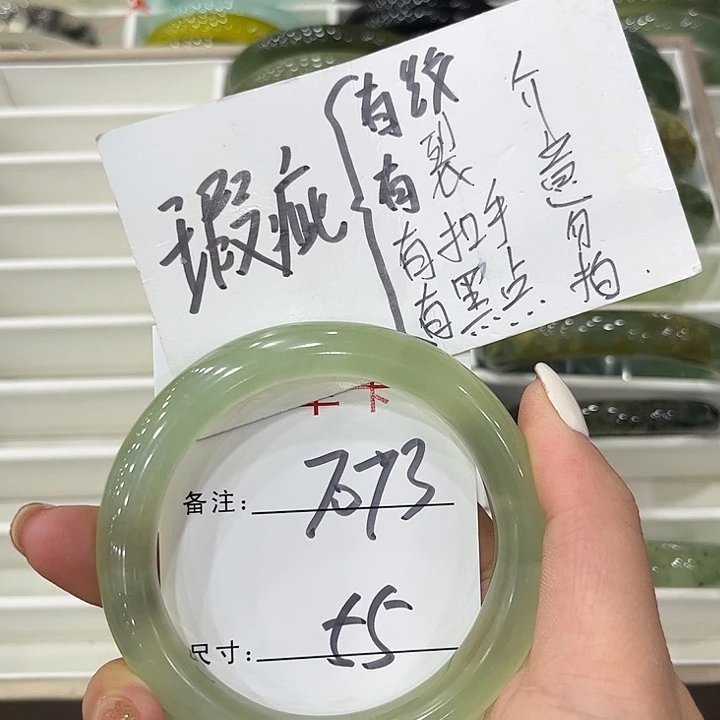 瑕疵
有纹
有裂
有扣手
有黑点
介意勿拍.
备注: 7073
尺寸: 55